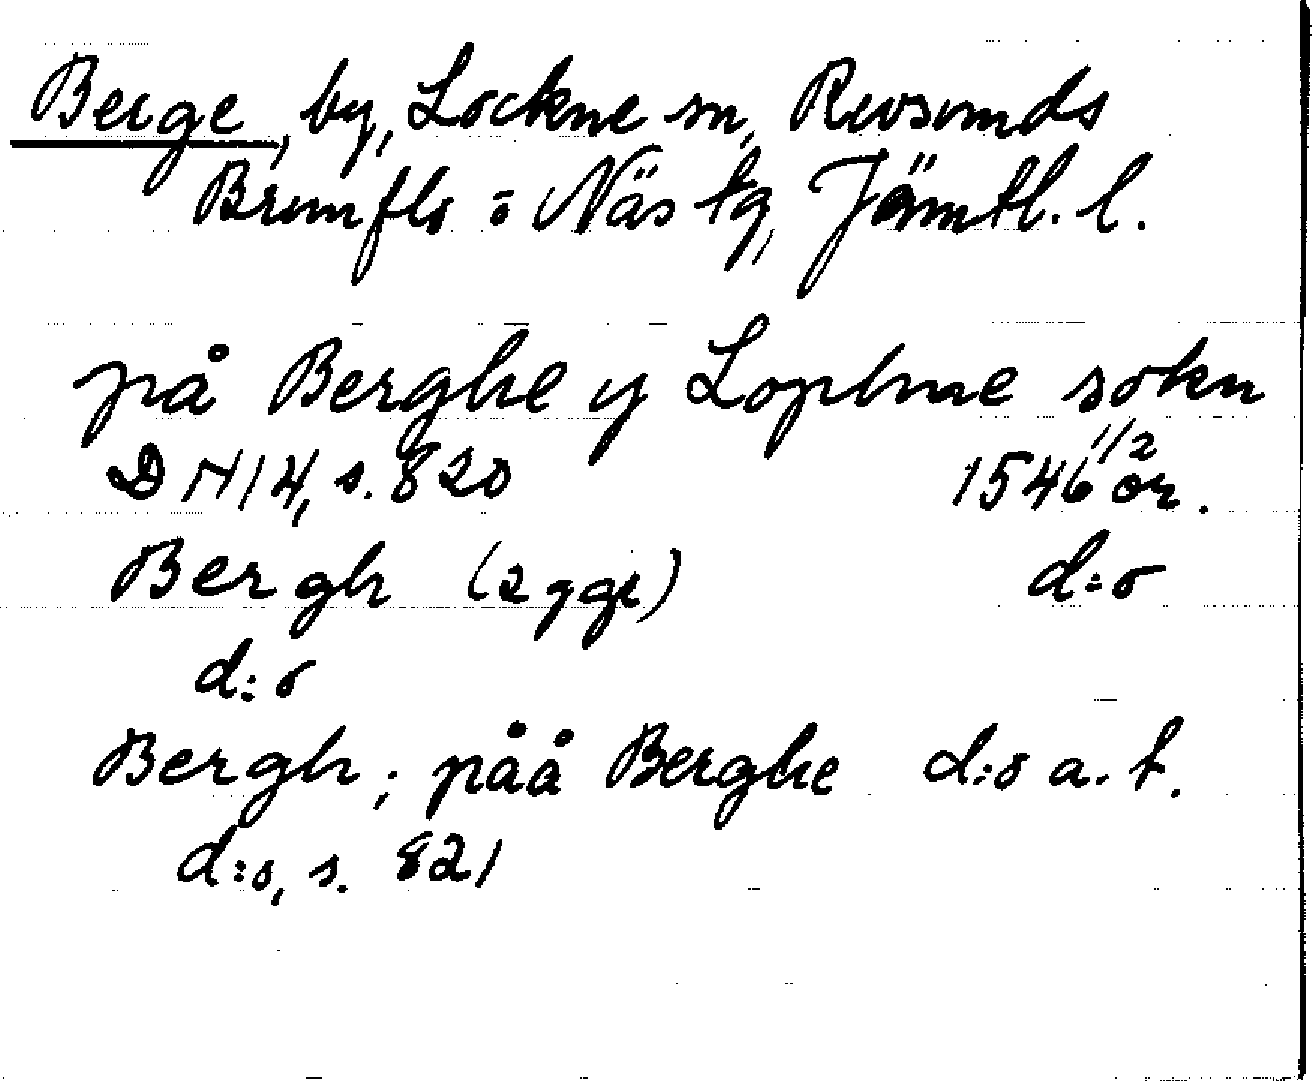 Berge, by, Lockne sn, Revsunds
Brunflo o Näs tg, Jämtl. l.
på Berghe y Lophne sokn
DN 14, s. 820 1546 1/2 or.
Bergh (2 ggr) d:o
d:o
Bergh; påå Berghe d:o a. t.
d:o, s. 821